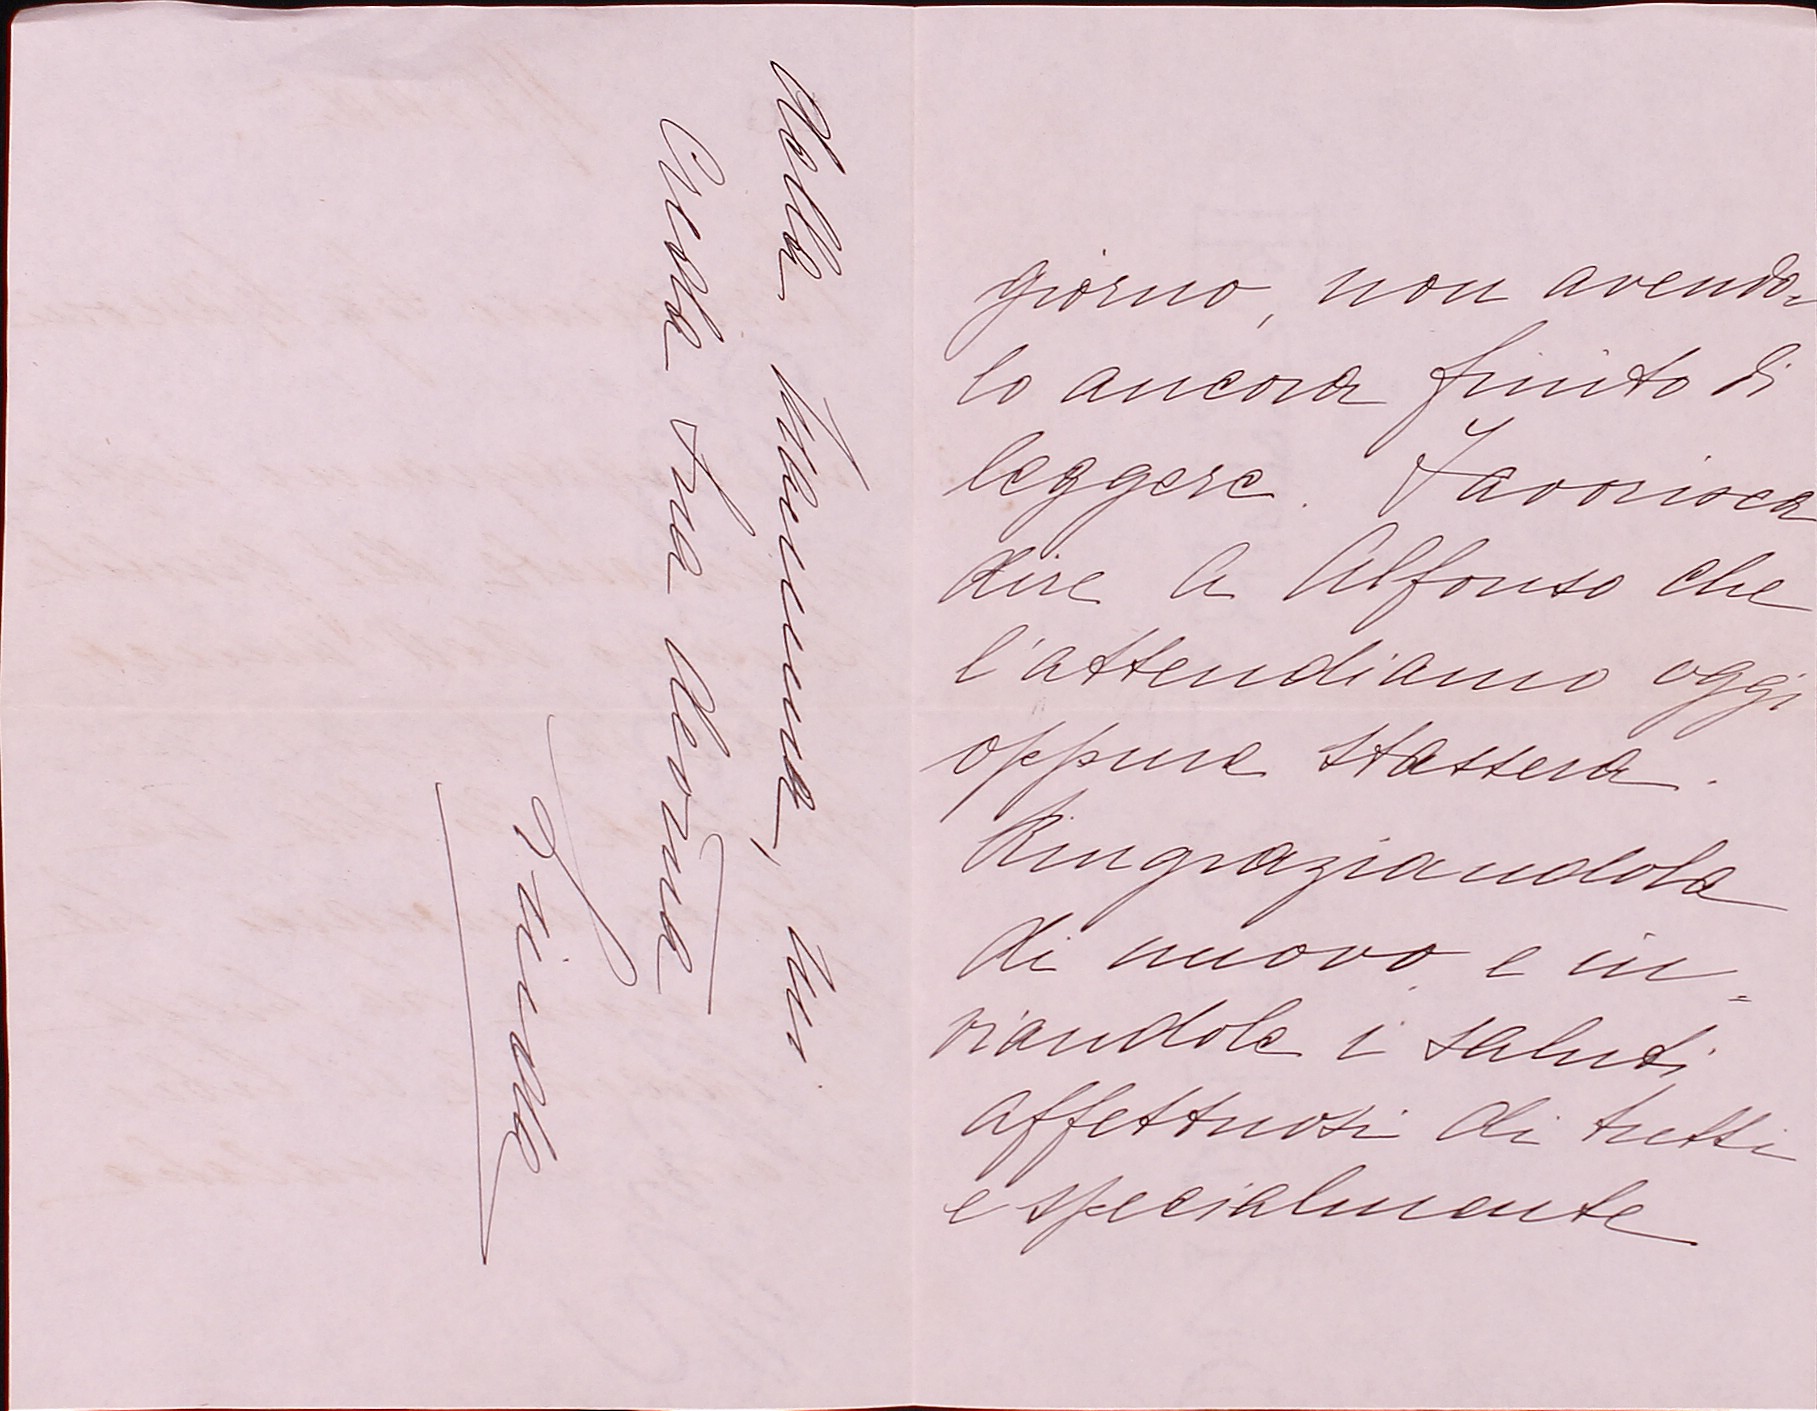 giorno, non avendo-
lo ancora finito di
leggere. Favorisca
dire a Alfonso che
l'attendiamo oggi
oppure stassera.
Ringraziandola
di nuovo e in=
viandole i saluti
affettuosi di tutti
e specialmente
della Mamma, mi
creda Sua devma